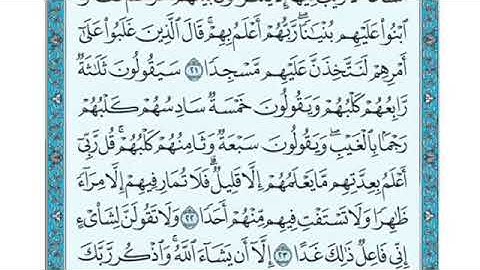 ٱبۡنُواْ عَلَيۡهِم بُنۡيَٰنٗاۖ رَّبُّهُمۡ أَعۡلَمُ بِهِمۡۚ قَالَ ٱلَّذِينَ غَلَبُواْ عَلَىٰٓ
أَمۡرِهِمۡ لَنَتَّخِذَنَّ عَلَيۡهِم مَّسۡجِدٗا ٢١ سَيَقُولُونَ ثَلَٰثَةٞ
رَّابِعُهُمۡ كَلۡبُهُمۡ وَيَقُولُونَ خَمۡسَةٞ سَادِسُهُمۡ كَلۡبُهُمۡ
رَجۡمَۢا بِٱلۡغَيۡبِۖ وَيَقُولُونَ سَبۡعَةٞ وَثَامِنُهُمۡ كَلۡبُهُمۡۚ قُل رَّبِّيٓ
أَعۡلَمُ بِعِدَّتِهِم مَّا يَعۡلَمُهُمۡ إِلَّا قَلِيلٞۗ فَلَا تُمَارِ فِيهِمۡ إِلَّا مِرَآءٗ
ظَٰهِرٗا وَلَا تَسۡتَفۡتِ فِيهِم مِّنۡهُمۡ أَحَدٗا ٢٢ وَلَا تَقُولَنَّ لِشَاْيۡءٍ
إِنِّي فَاعِلٞ ذَٰلِكَ غَدًا ٢٣ إِلَّآ أَن يَشَآءَ ٱللَّهُۚ وَٱذۡكُر رَّبَّكَ